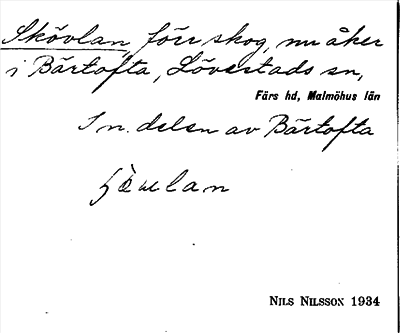 Skövlan, förr skog, nu åker
i Bärtofta, Lövestads sn,
Färs hd, Malmöhus län
I n. delen av Bärtofta
Nils Nilsson 1934